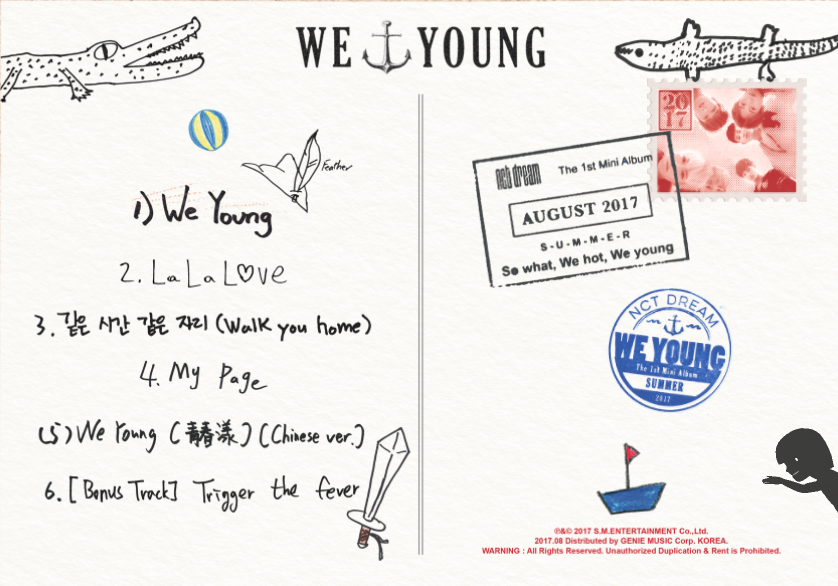 WE YOUNG
Feather
1) We Young
2. La La L♡ve
3. 같은 시간 같은 자리 (Walk you home)
4. My Page
(5) We Young (青春漾) (Chinese ver.)
6. [Bonus Track] Trigger the fever
2017
nct dream The 1st Mini Album
AUGUST 2017
S-U-M-M-E-R
So what, We hot, We young
NCT DREAM
WE YOUNG
The 1st Mini Album
SUMMER
2017
℗&© 2017 S.M.ENTERTAINMENT Co.,Ltd.
2017.08 Distributed by GENIE MUSIC Corp. KOREA.
WARNING : All Rights Reserved. Unauthorized Duplication & Rent is Prohibited.